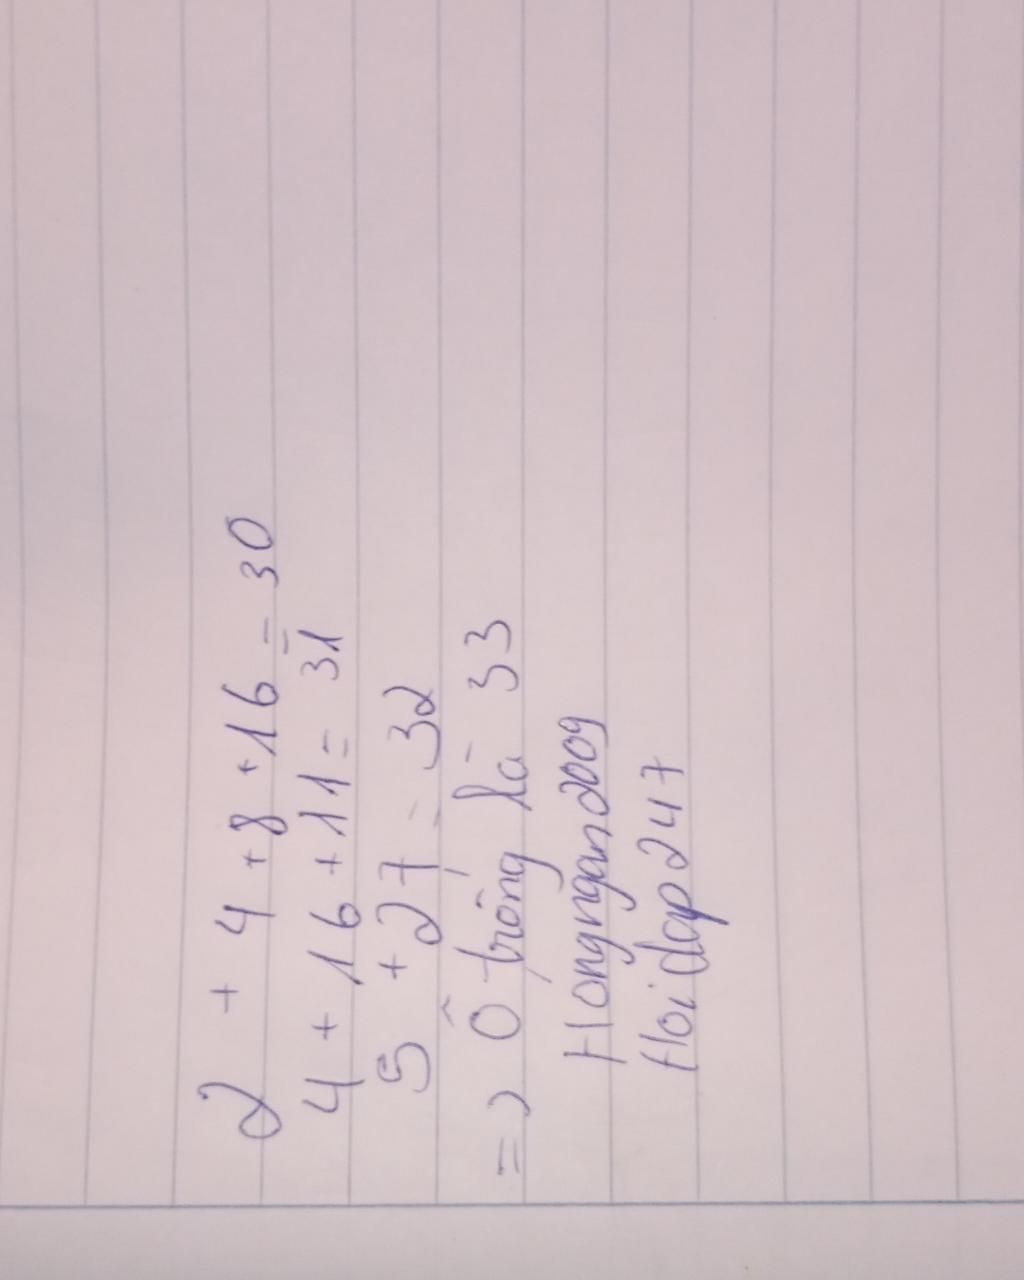 2 + 4 + 8 + 16 = 30
4 + 16 + 11 = 31
5 + 27 = 32
=> Ô trống là 33
Hongngan2009
Hoidap247